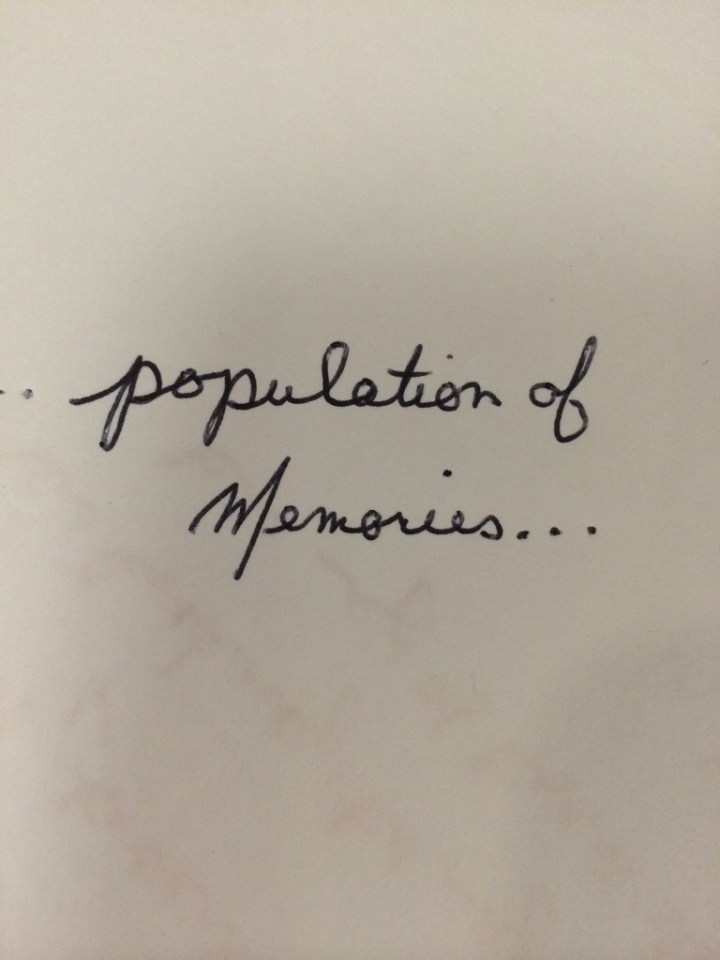 .. population of
Memories...